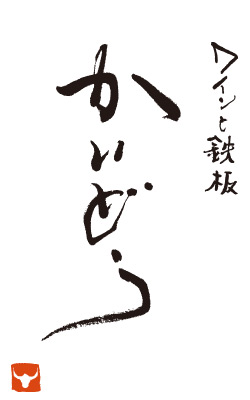 ワインと鉄板
かいどう